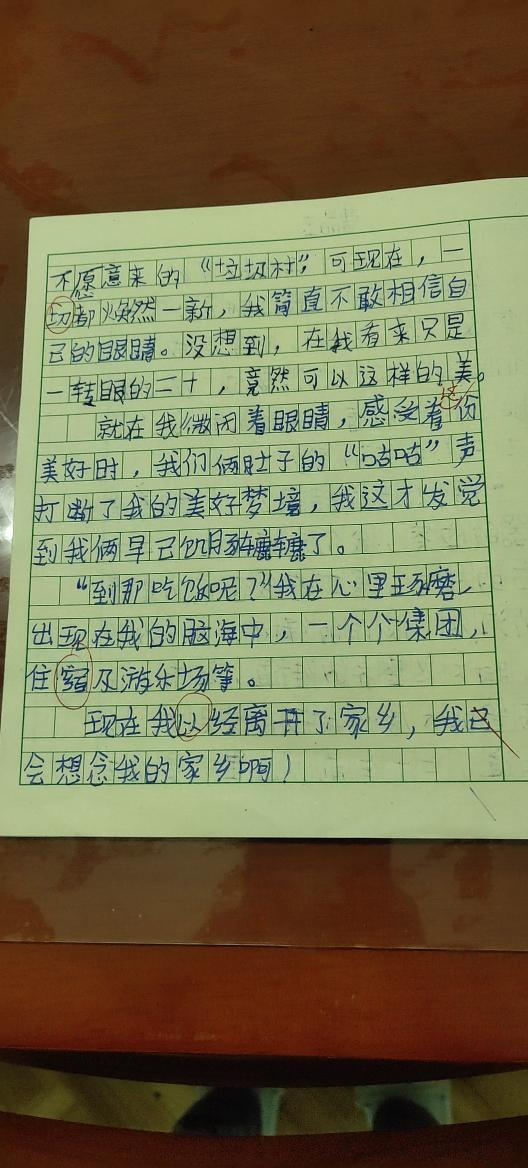 不愿意来的“垃圾村”，可现在，一
切都焕然一新，我简直不敢相信自
己的眼睛。没想到，在我看来只是
一转眼的二十，竟然可以这样的美。
就在我微闭着眼睛，感受着这份
美好时，我们俩肚子的“咕咕”声
打断了我的美好梦境，我这才发觉
到我俩早已饥肠辘辘了。
“到那吃饭呢？”我在心里琢磨，
出现在我的脑海中，一个个集团，
住宿及游乐场等。
现在我以经离开了家乡，我
会想念我的家乡啊！